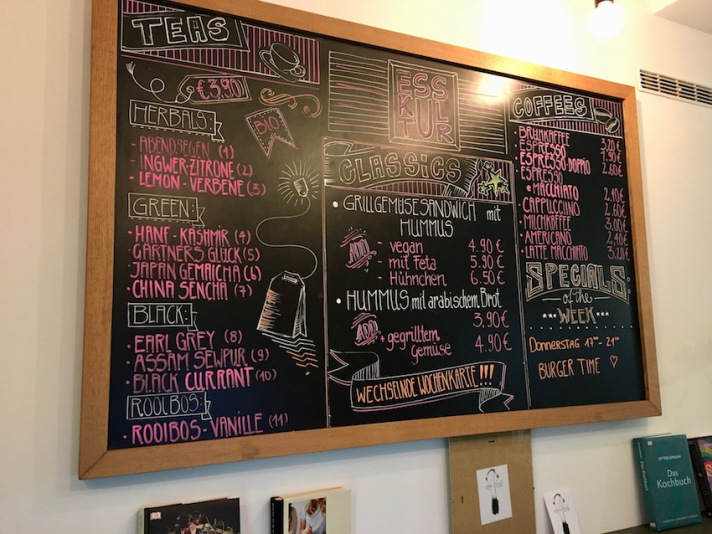 TEAS
€ 3.90
BIO
HERBALS:
- ABENDSEGEN (1)
- INGWER-ZITRONE (2)
- LEMON-VERBENE (3)
GREEN:
- HANF-KASHMIR (4)
- GÄRTNERS GLÜCK (5)
- JAPAN GEMAICHA (6)
- CHINA SENCHA (7)
BLACK:
- EARL GREY (8)
- ASSAM SEWPUR (9)
- BLACK CURRANT (10)
ROOIBOS:
• ROOIBOS-VANILLE (11)
ESS
KUL
TUR
CLASSICS
• GRILLGEMÜSESANDWICH mit
HUMMUS
ADD
- vegan 4.90 €
- mit Feta 5.90 €
- Hühnchen 6.50 €
• HUMMUS mit arabischem Brot
3.90 €
ADD
+ gegrilltem
Gemüse 4.90 €
WECHSELNDE WOCHENKARTE!!!
COFFEES
• BRÜHKAFFEE 3.20 €
• ESPRESSO 1.90 €
• ESPRESSO DOPPIO 2.60 €
• ESPRESSO
MACCHIATO 2.10 €
• CAPPUCCINO 2.60 €
• MILCHKAFFEE 3.00 €
• AMERICANO 2.40 €
• LATTE MACCHIATO 3.20 €
SPECIALS
of the
*** WEEK ***
Donnerstag 17°°- 21°°
BURGER TIME ♡
OTTOLENGHI
Das
Kochbuch